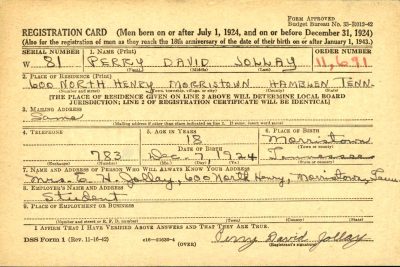 Form Approved
Budget Bureau No. 33-R012-42
REGISTRATION CARD (Men born on or after July 1, 1924, and on or before December 31, 1924)
(Also for the registration of men as they reach the 18th anniversary of the date of their birth on or after January 1, 1943.)
SERIAL NUMBER 1. NAME (Print) ORDER NUMBER
W 81 PERRY DAVID JOLLAY 11,691
(First) (Middle) (Last)
2. PLACE OF RESIDENCE (Print)
600 NORTH HENRY MORRISTOWN HAMBLEN TENN.
(Number and street) (Town, township, village, or city) (County) (State)
[THE PLACE OF RESIDENCE GIVEN ON LINE 2 ABOVE WILL DETERMINE LOCAL BOARD
JURISDICTION; LINE 2 OF REGISTRATION CERTIFICATE WILL BE IDENTICAL]
3. MAILING ADDRESS
Same
(Mailing address if other than place indicated on line 2. If same, insert word same)
4. TELEPHONE 5. AGE IN YEARS 6. PLACE OF BIRTH
18 Morristown
DATE OF BIRTH (Town or county)
783 Dec. 7, 1924 Tennessee
(Exchange) (Number) (Mo.) (Day) (Yr.) (State or country)
7. NAME AND ADDRESS OF PERSON WHO WILL ALWAYS KNOW YOUR ADDRESS
Mrs. H. Jollay, 600 North Henry, Morristown, Tenn.
8. EMPLOYER'S NAME AND ADDRESS
Student
9. PLACE OF EMPLOYMENT OR BUSINESS
(Number and street or R. F. D. number) (Town) (County) (State)
I AFFIRM THAT I HAVE VERIFIED ABOVE ANSWERS AND THAT THEY ARE TRUE.
DSS Form 1 (Rev. 11-16-42) (OVER) Perry David Jollay
(Registrant's signature)